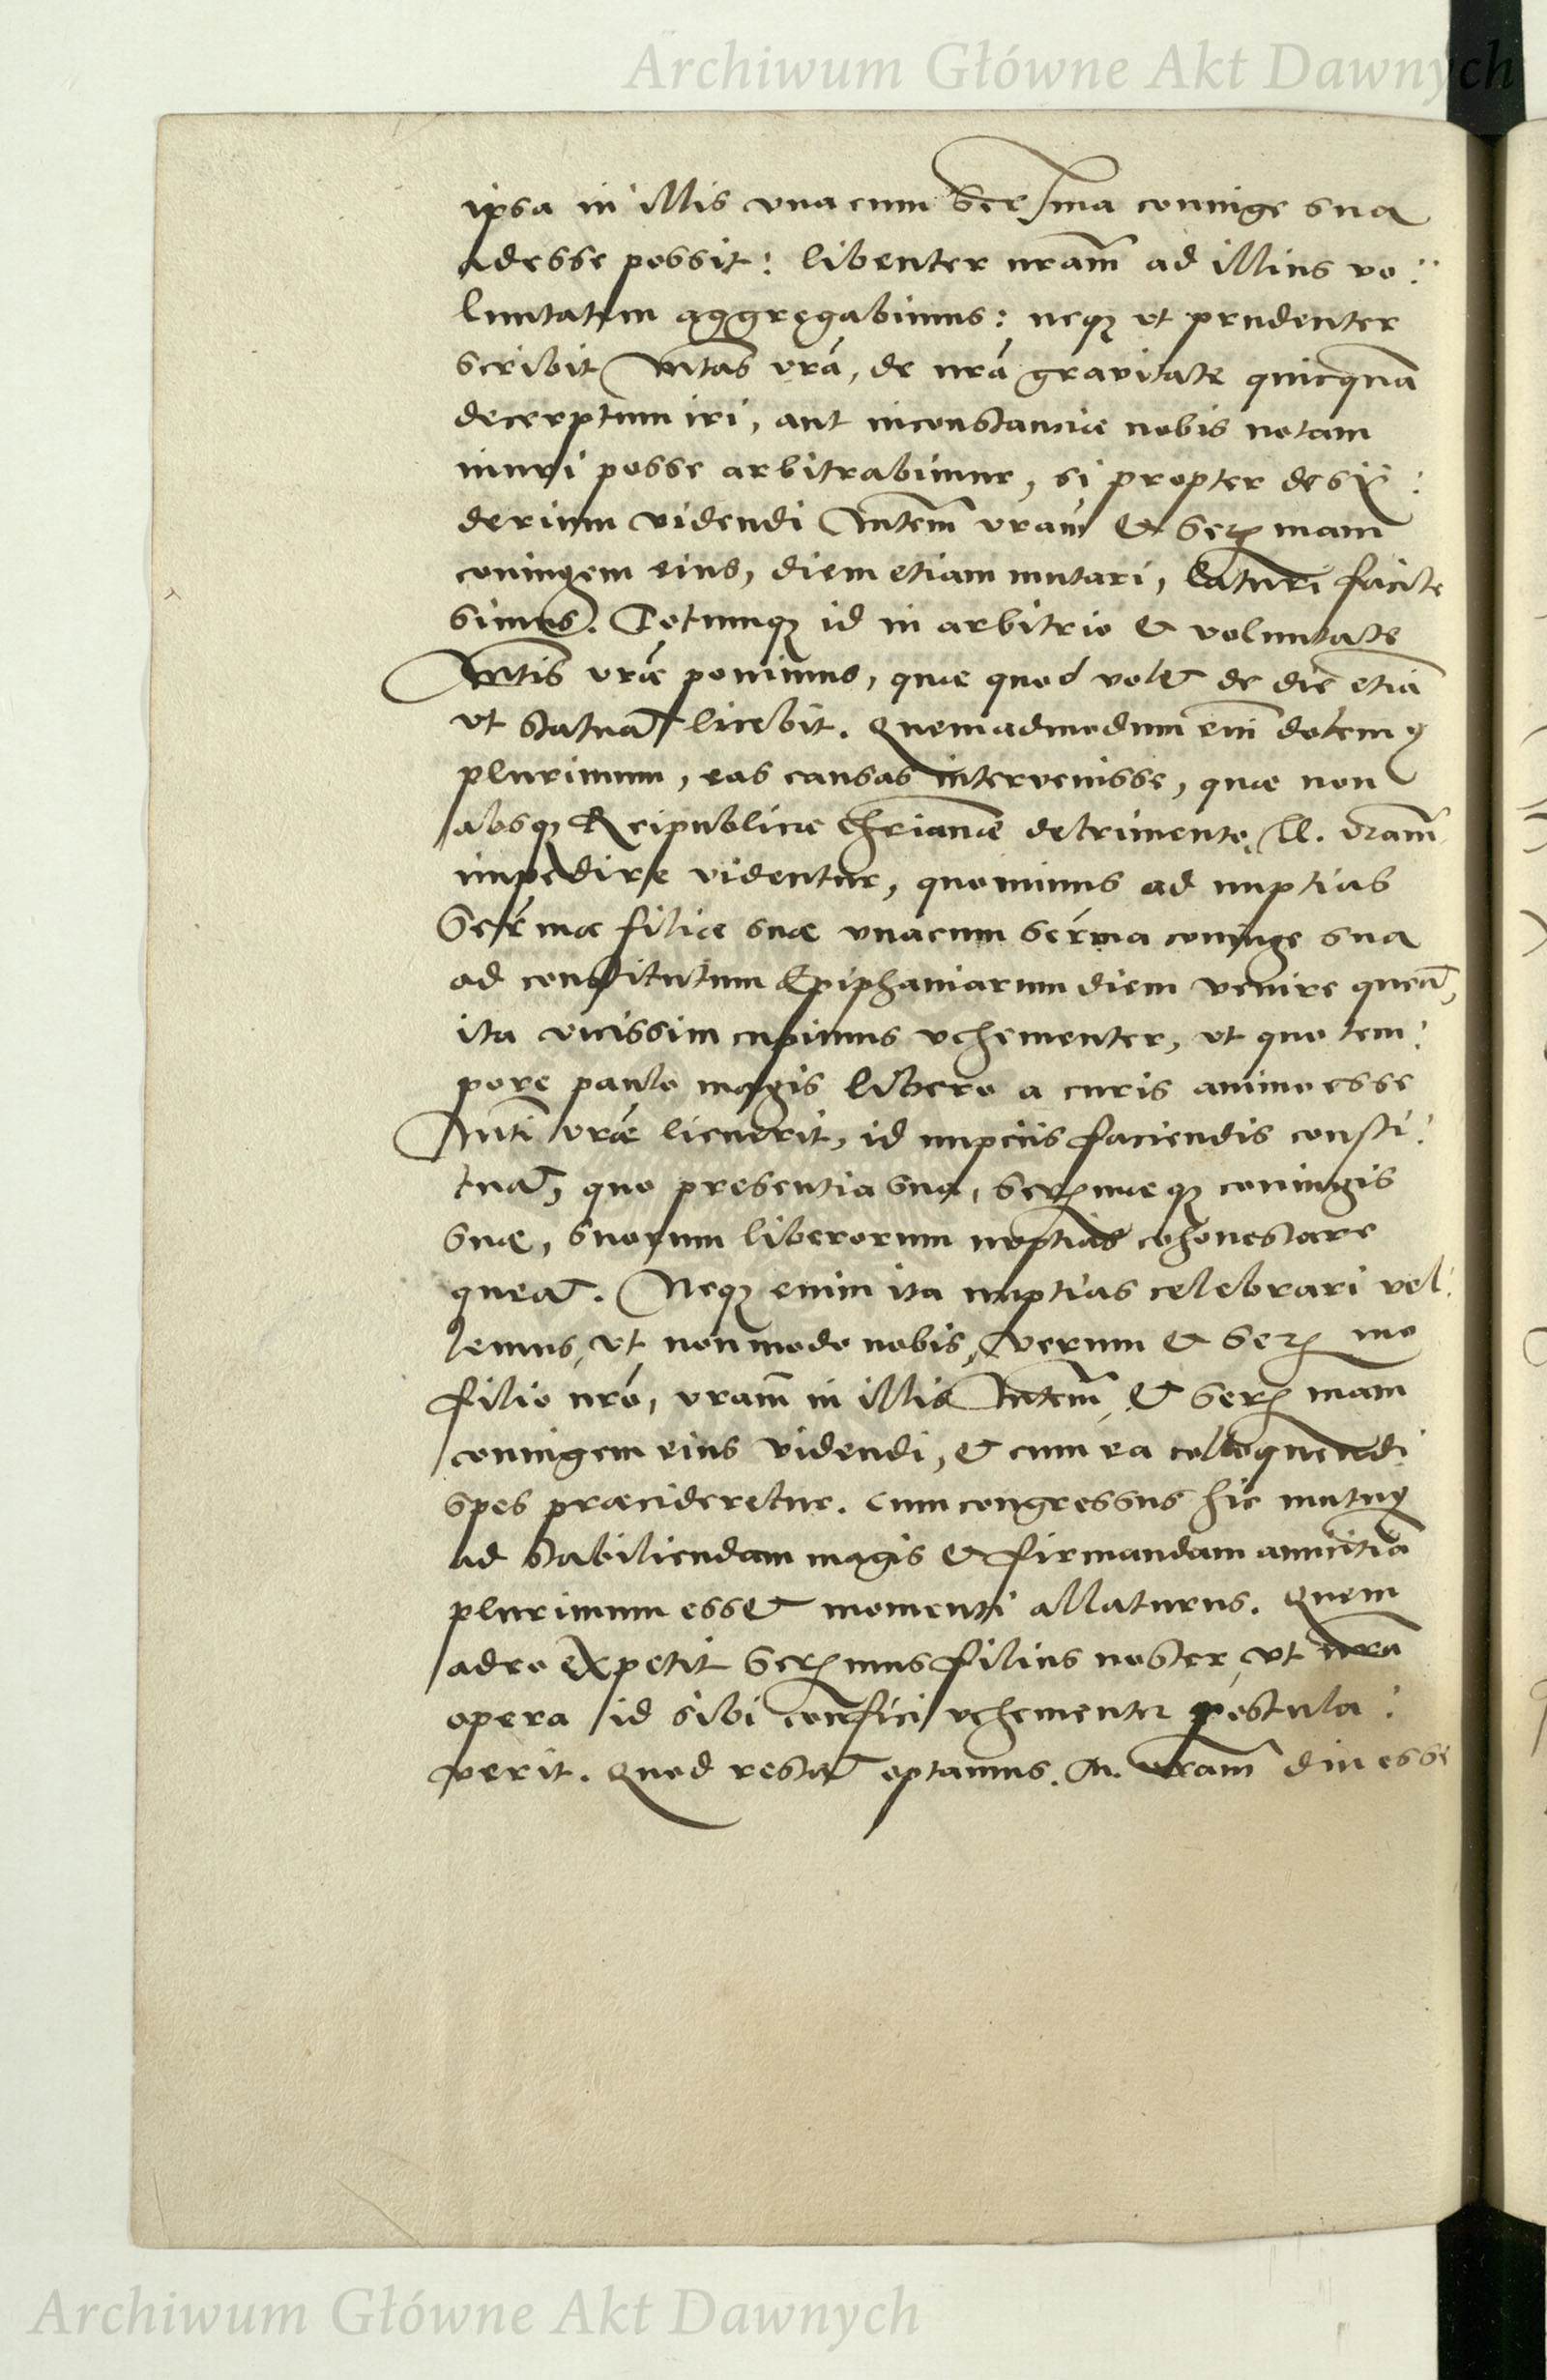 Archiwum Główne Akt Dawnych
ipsa in illis unacum Serma coniuge sua
adesse possit: libenter nram ad illius vo:
luntatem aggregabimus: neq; ut prudenter
scribit Mtas vra, de nra gravitate quicquã
decerptum iri, aut inconstantiæ nobis notam
inuri posse arbitrabimur, si propter desy:
derium videndi Mtem vram & Sermam
coniugem eius, diem etiam mutari, laturi facile
simus. Totumq; id in arbitrio & voluntate
Mtis vræ ponimus, quæ quod volet de die etiã
ut statuat licebit. Quemadmodum eni dolemus
plurimum, eas causas intervenisse, quæ non
absq; Reipublicæ Chrianæ detrimento, M. vram
impedire videntur, quominus ad nuptias
Sermæ filiæ suæ unacum Serma coniuge sua
ad constitutum Epiphaniarum diem venire queat,
ita vicissim cupimus vehementer, ut quo tem:
pore paulo magis libero a curis animo esse
Mti vræ licuerit, id nupciis faciendis consti:
tuat, quo presentia sua, Sermæq; coniugis
suæ, suorum liberorum nuptias cohonestare
queat. Neq; enim ita nuptias celebrari vel:
lemus, ut non modo nobis, verum & Sermo
filio nro, vram in illis Mtem, & Sermam
coniugem eius videndi, & cum ea colloquendi
spes præcideretur. Cum congressus hic mutuus
ad stabiliendam magis & firmandam amicitiã
plurimum esset momenti allaturus. Quem
adeo expetit Sermus filius noster, ut nra
opera id sibi confici vehementer postula:
verit. Quod restat optamus. M. vram diu esse
Archiwum Główne Akt Dawnych